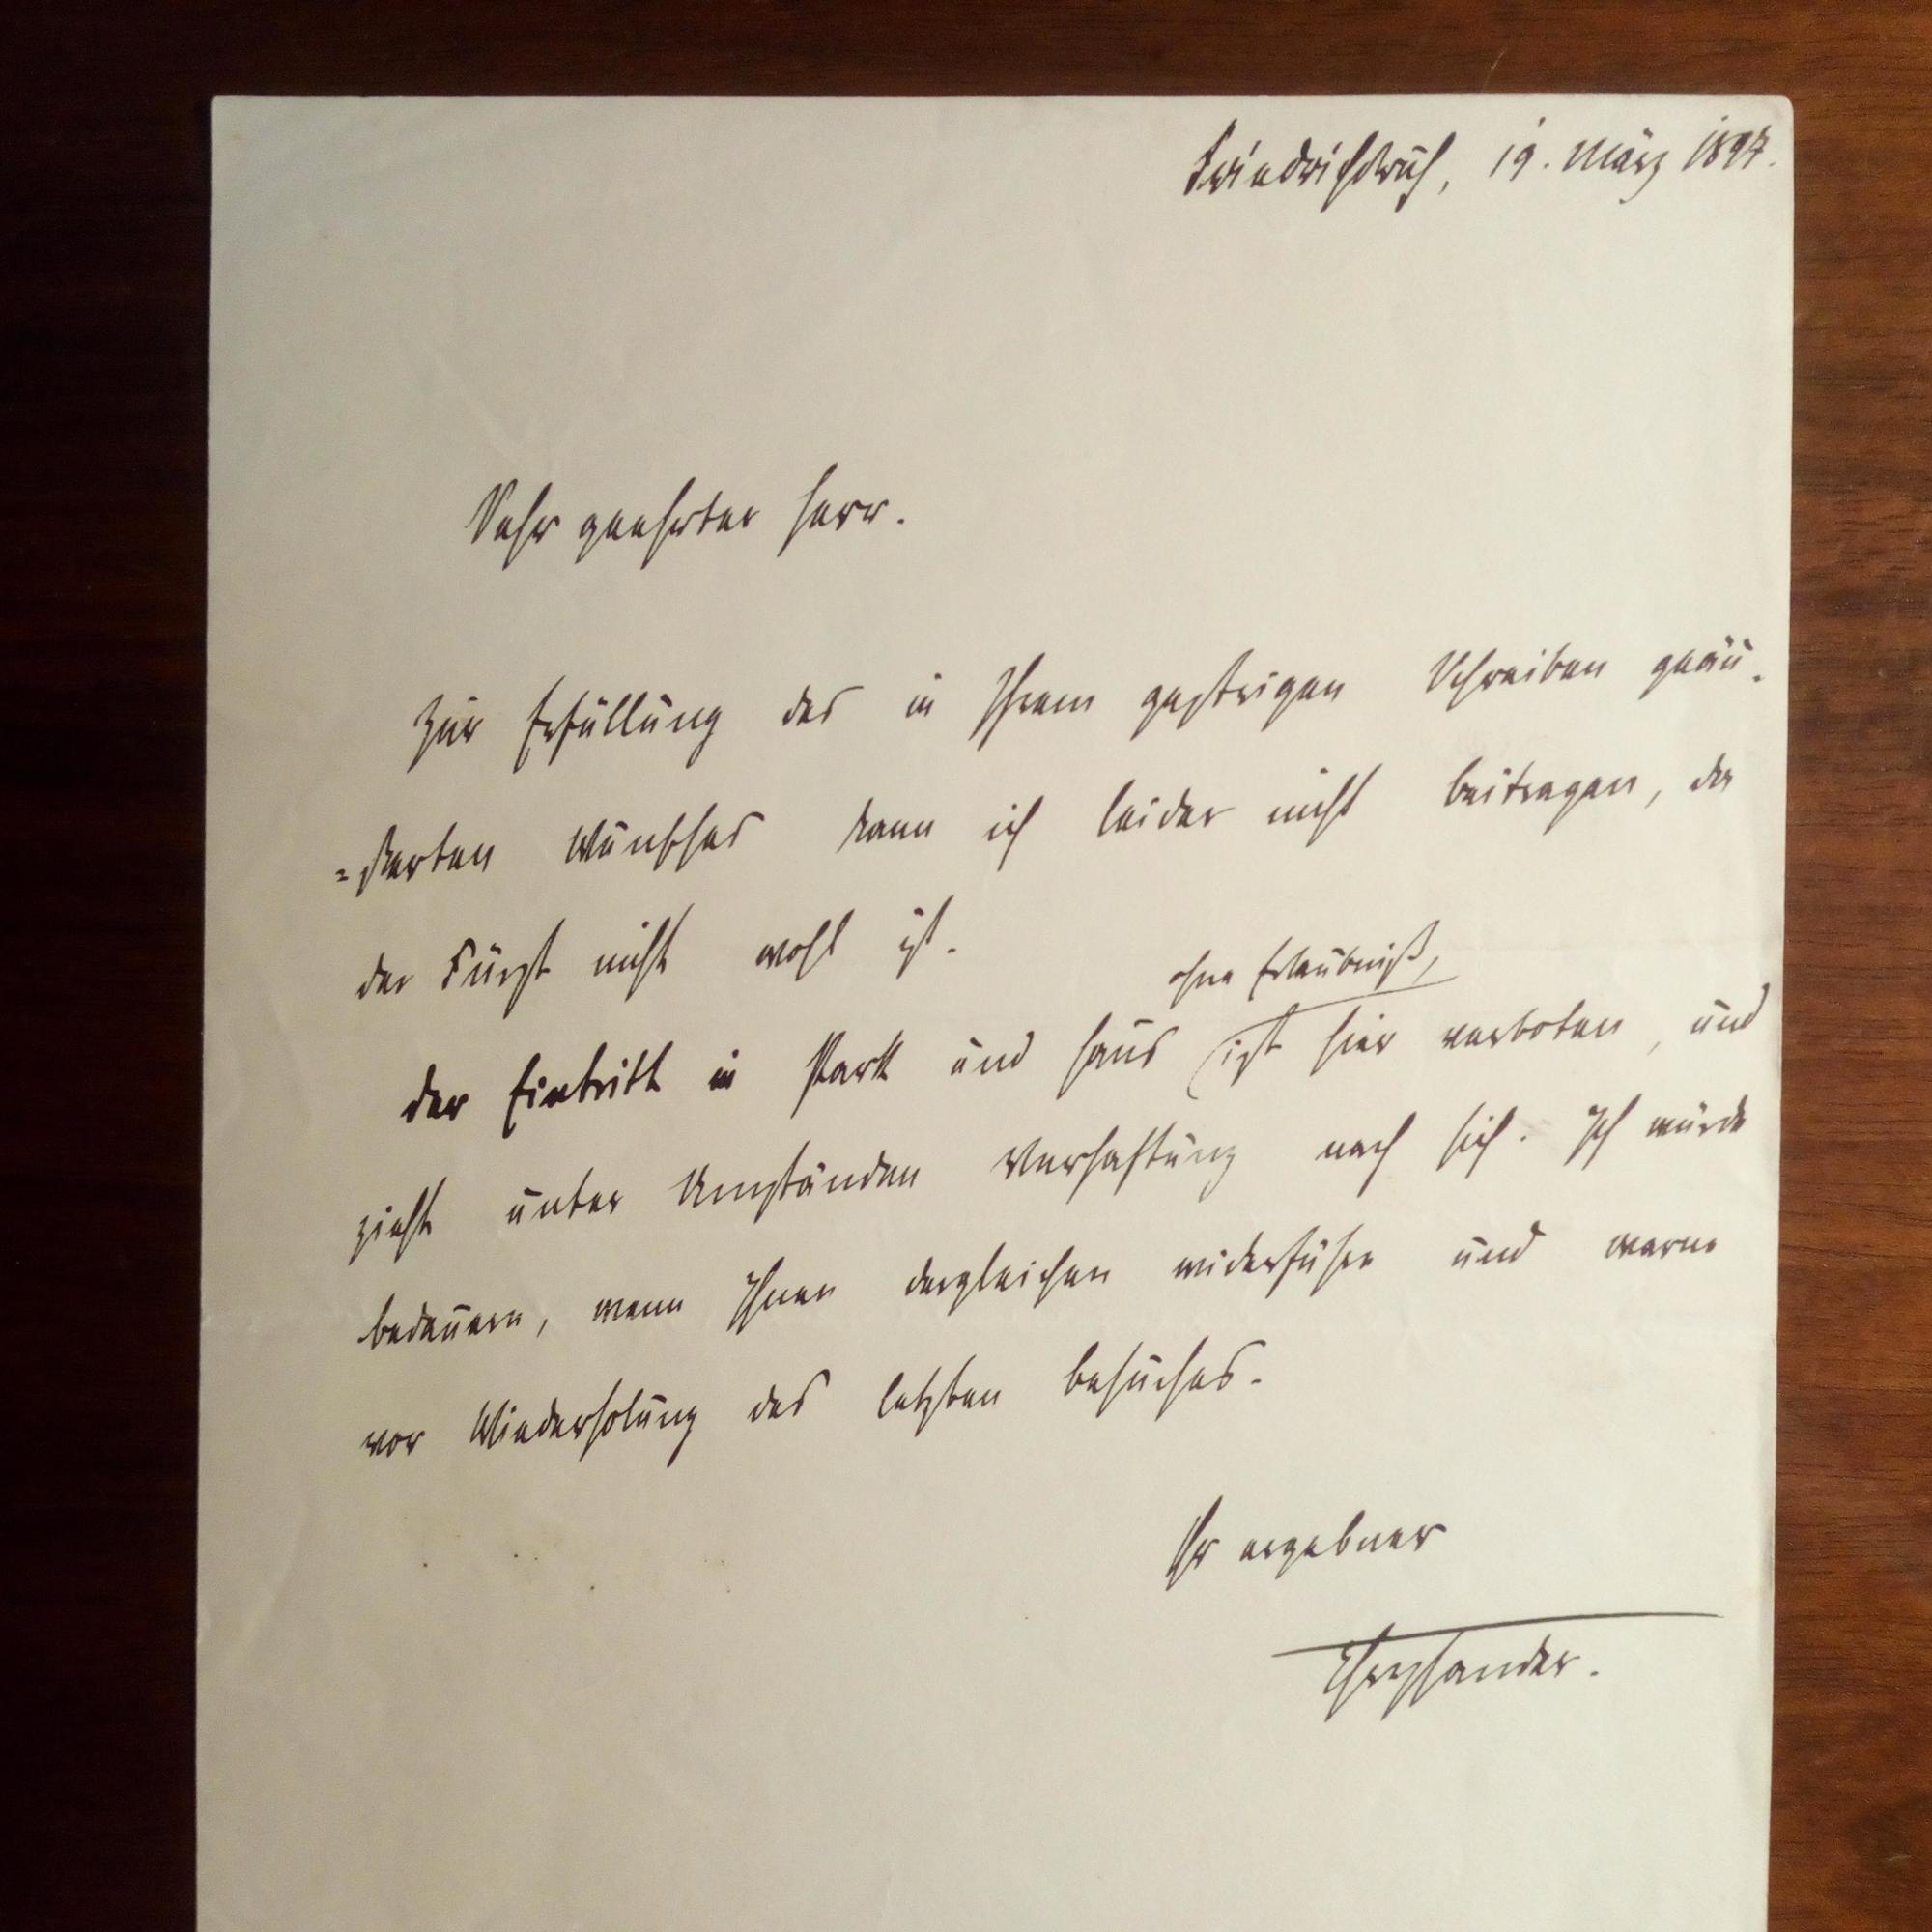 Friedrichsruh, 19. März 1897.
Sehr geehrter Herr.
Zur Erfüllung des in Ihrem gestrigen Schreiben geäu-
=ßerten Wunsches kann ich leider nicht beitragen, da
der Fürst nicht wohl ist.
ohne Erlaubniß,
Der Eintritt in Park und Haus ist hier verboten, und
zieht unter Umständen Verhaftung nach sich. Ich würde
bedauern, wenn Ihnen dergleichen widerführe und warne
vor Wiederholung des letzten Besuches.
Ihr ergebner
Chrysander.